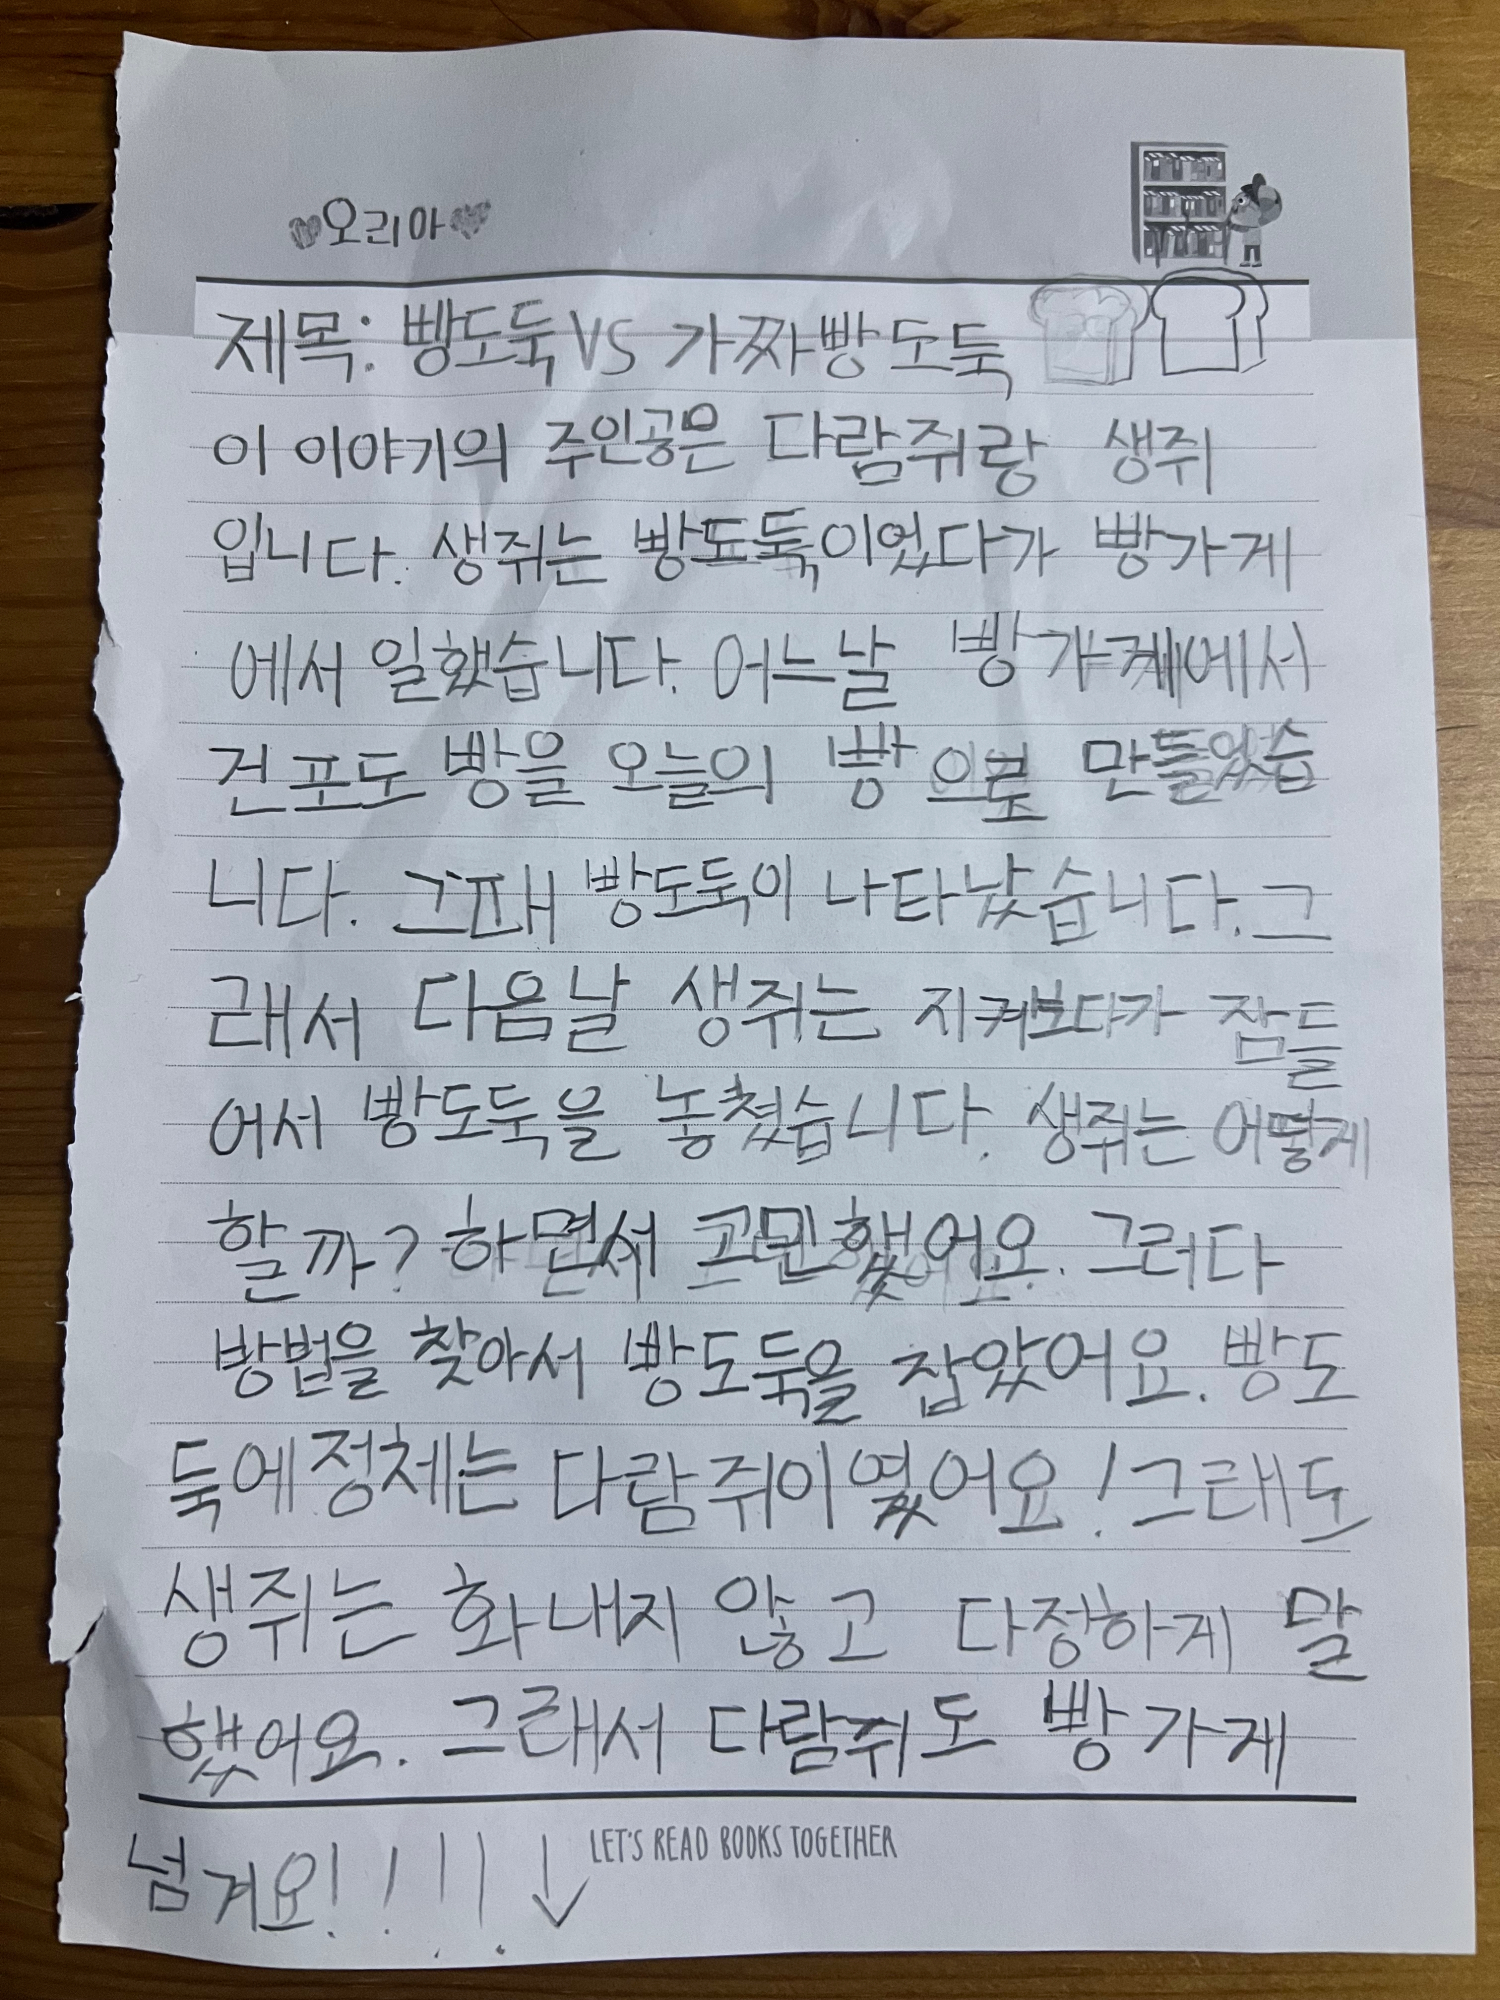 ♥오리아♥
제목: 빵도둑 VS 가짜 빵도둑
이 이야기의 주인공은 다람쥐랑 생쥐
입니다. 생쥐는 빵도둑이었다가 빵가게
에서 일했습니다. 어느날 빵가게에서
건포도 빵을 오늘의 빵으로 만들었습
니다. 그때 빵도둑이 나타났습니다. 그
래서 다음날 생쥐는 지켜보다가 잠들
어서 빵도둑을 놓쳤습니다. 생쥐는 어떻게
할까? 하면서 고민했어요. 그러다
방법을 찾아서 빵도둑을 잡았어요. 빵도
둑에 정체는 다람쥐이였어요! 그래도
생쥐는 화내지 않고 다정하게 말
했어요. 그래서 다람쥐도 빵가게
넘겨요!!!! ↓
LET'S READ BOOKS TOGETHER